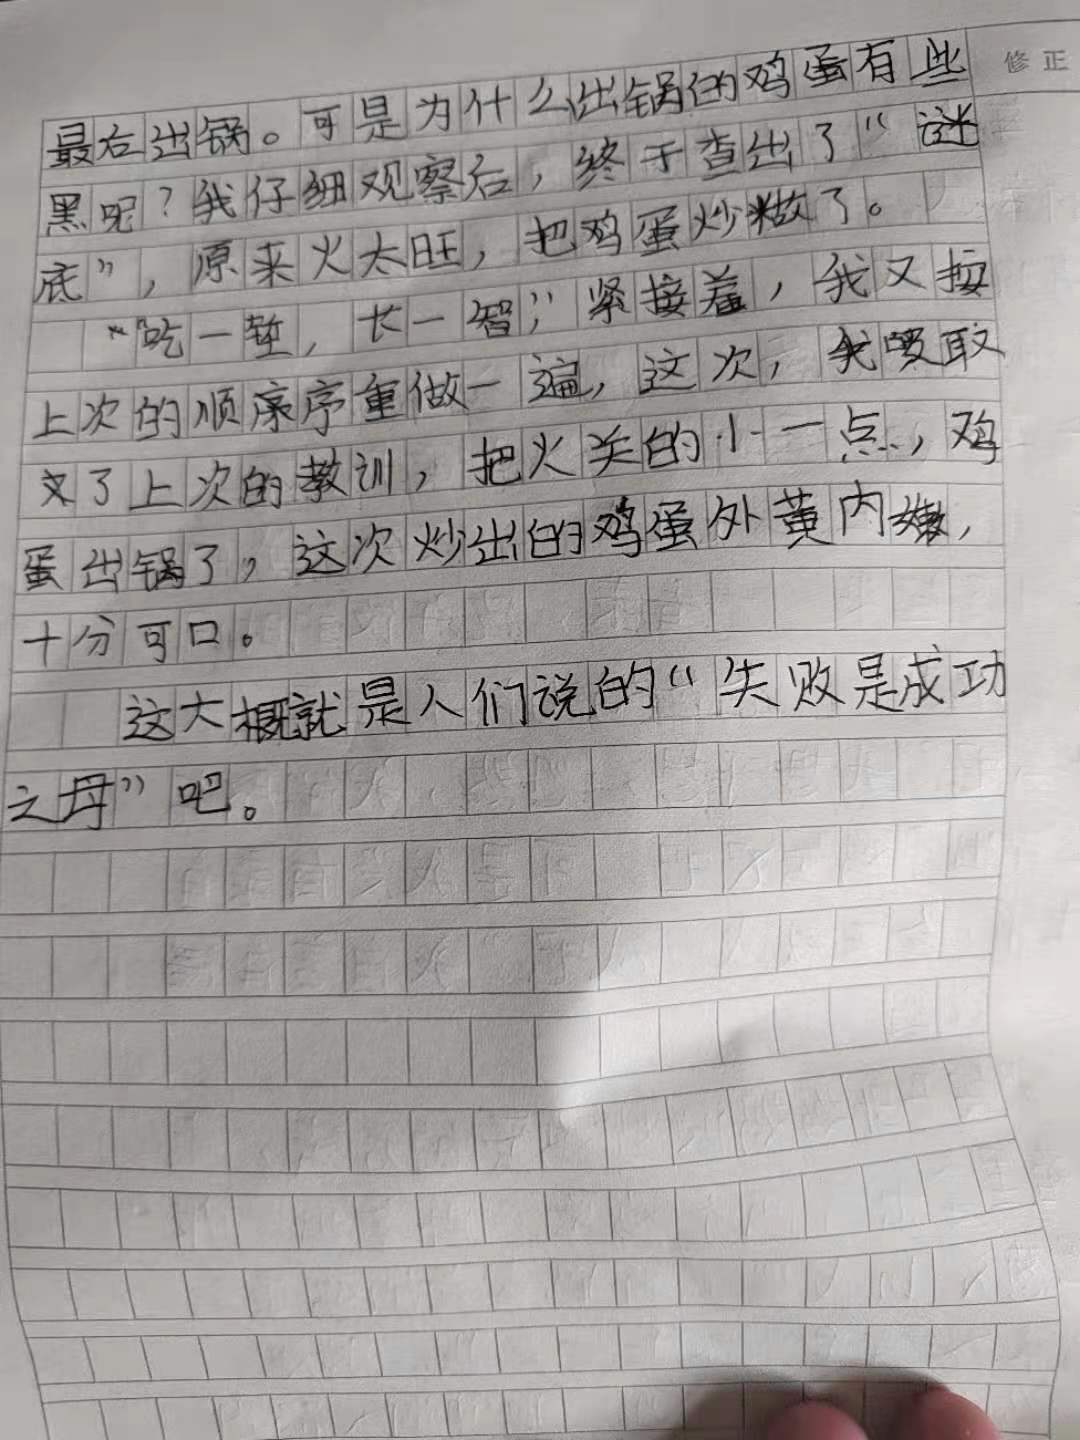 修正
最后出锅。可是为什么出锅的鸡蛋有些
黑呢？我仔细观察后，终于查出了“谜
底”，原来火太旺，把鸡蛋炒糊了。
“吃一堑，长一智；”紧接着，我又按
上次的顺序序重做一遍，这次，我要取
文了上次的教训，把火关的小一点，鸡
蛋出锅了，这次炒出的鸡蛋外黄内嫩，
十分可口。
这大概就是人们说的“失败是成功
之母”吧。